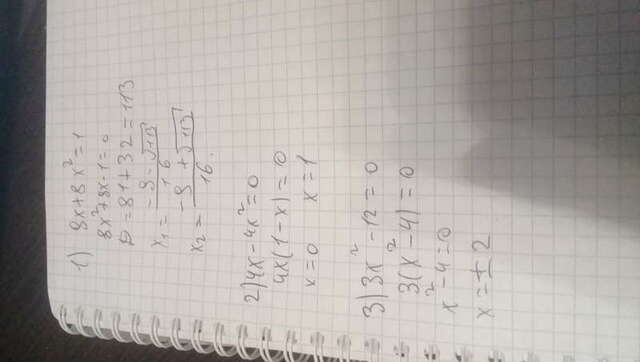 1) 9x+8x²=1
8x²+9x-1=0
D=81+32=113
x₁=(-9-√113)/16
x₂=(-9+√113)/16.
2) 4x-4x²=0
4x(1-x)=0
x=0 x=1
3) 3x²-12=0
3(x²-4)=0
x²-4=0
x=±2